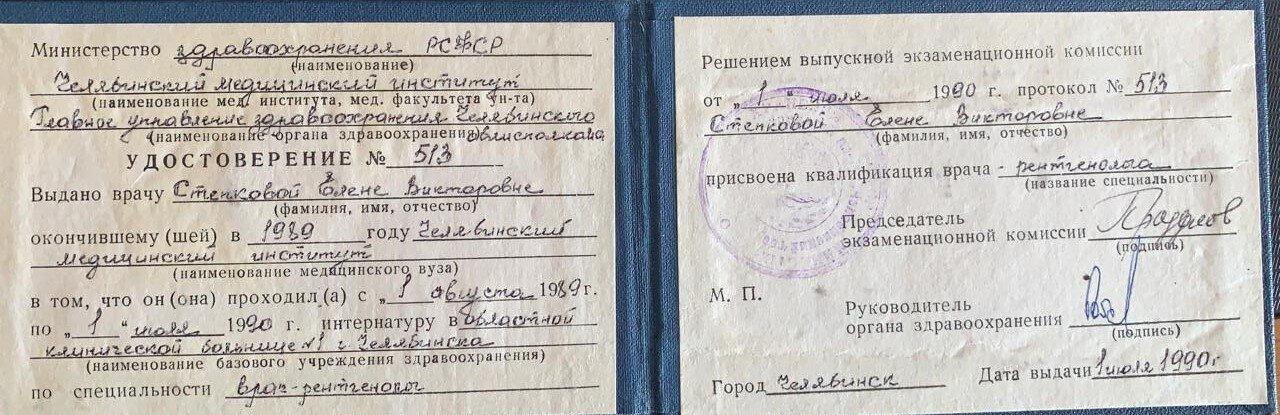 Министерство здравоохранения РСФСР
(наименование)
Челябинский медицинский институт
(наименование мед. института, мед. факультета ун-та)
Главное управление здравоохранения Челябинского
(наименование органа здравоохранения) облисполкома
УДОСТОВЕРЕНИЕ № 513
Выдано врачу Степковой Елене Викторовне
(фамилия, имя, отчество)
окончившему (шей) в 1989 году Челябинский
медицинский институт
(наименование медицинского вуза)
в том, что он (она) проходил (а) с „1 августа 1989 г.
по „1“ июля 1990 г. интернатуру в областной
клинической больнице №1 г. Челябинска
(наименование базового учреждения здравоохранения)
по специальности врач-рентгенолог
Решением выпускной экзаменационной комиссии
от „1“ июля 1990 г. протокол № 513
Степковой Елене Викторовне
(фамилия, имя, отчество)
присвоена квалификация врача - рентгенолога
(название специальности)
Председатель
экзаменационной комиссии
(подпись)
М. П.
Руководитель
органа здравоохранения
(подпись)
Город Челябинск Дата выдачи 1 июля 1990 г